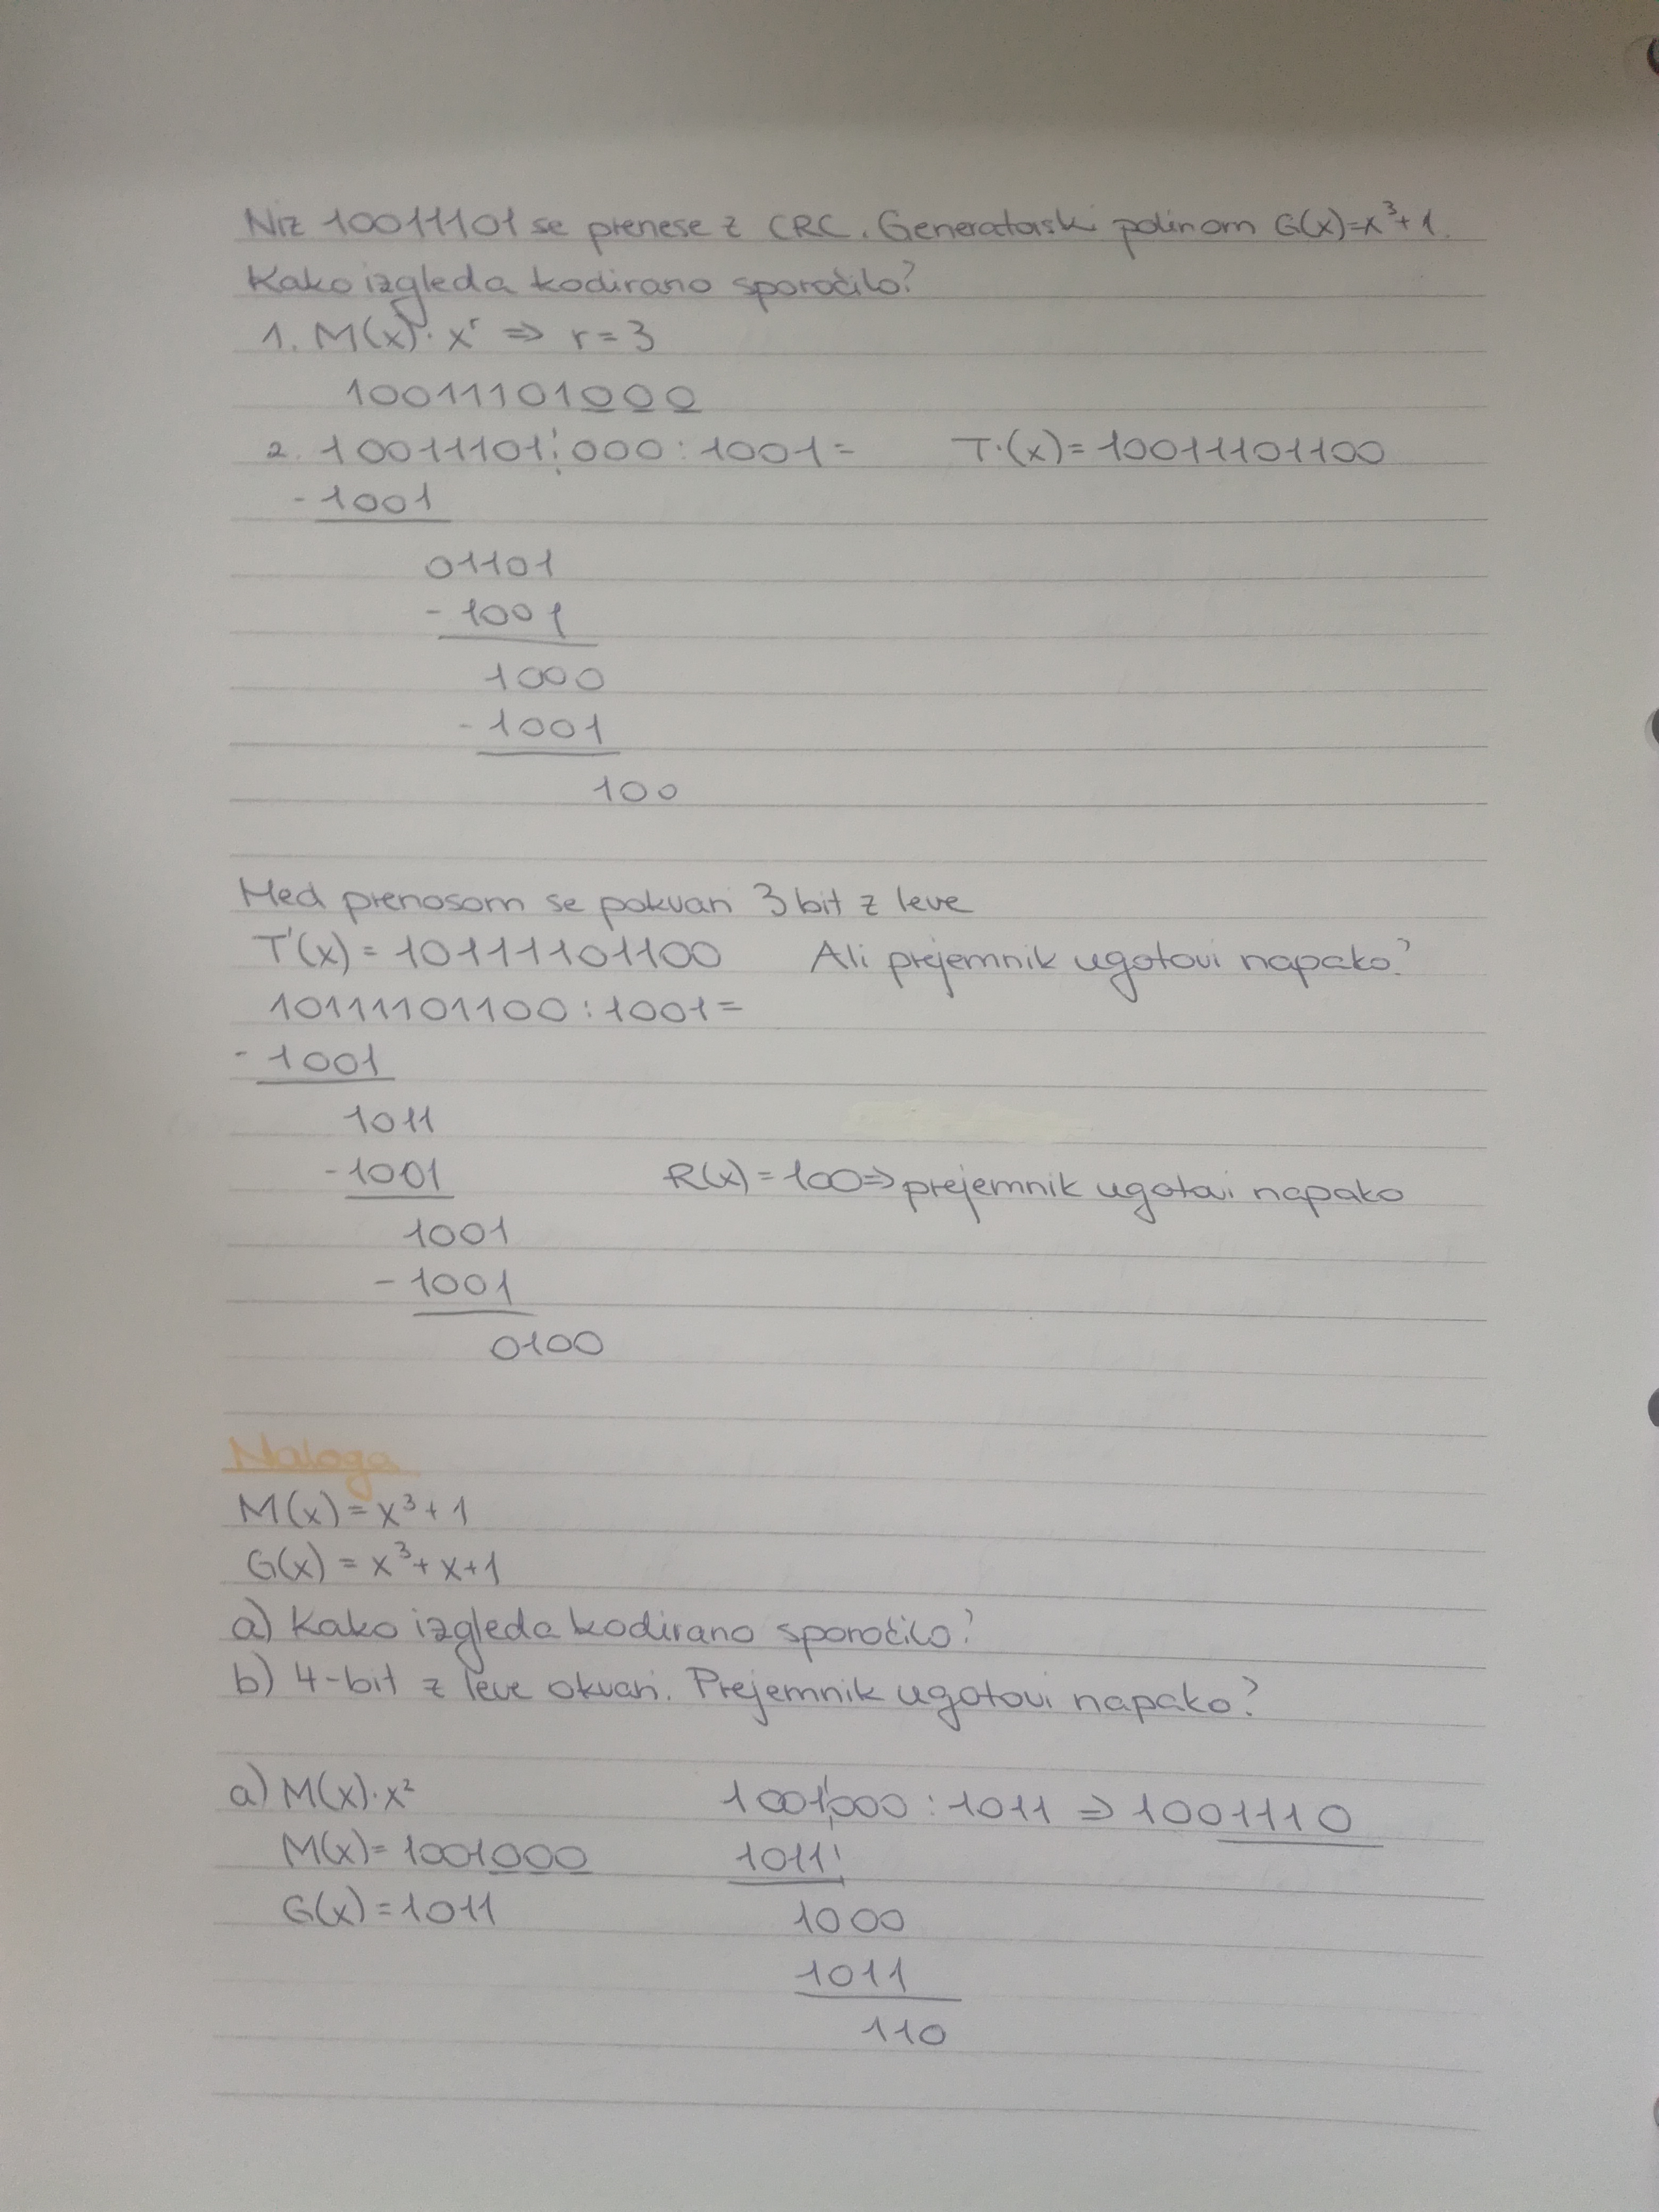 Niz 10011101 se prenese z CRC. Generatorski polinom G(x)=x³+1.
Kako izgleda kodirano sporočilo?
1. M(x)·xʳ ⇒ r=3
10011101000
2. 10011101¦000 : 1001= T·(x)=10011101100
-1001
01101
-1001
1000
-1001
100
Med prenosom se pokvari 3 bit z leve
T'(x)=10111101100 Ali prejemnik ugotovi napako?
10111101100:1001=
-1001
1011
-1001 R(x)=100⇒prejemnik ugotovi napako
1001
-1001
0100
Naloga
M(x)=x³+1
G(x)=x³+x+1
a) Kako izgleda kodirano sporočilo?
b) 4-bit z leve okvari. Prejemnik ugotovi napako?
a) M(x)·x² 1001¦000 : 1011 ⇒ 1001110
M(x)=1001000 1011
G(x)=1011 1000
1011
110